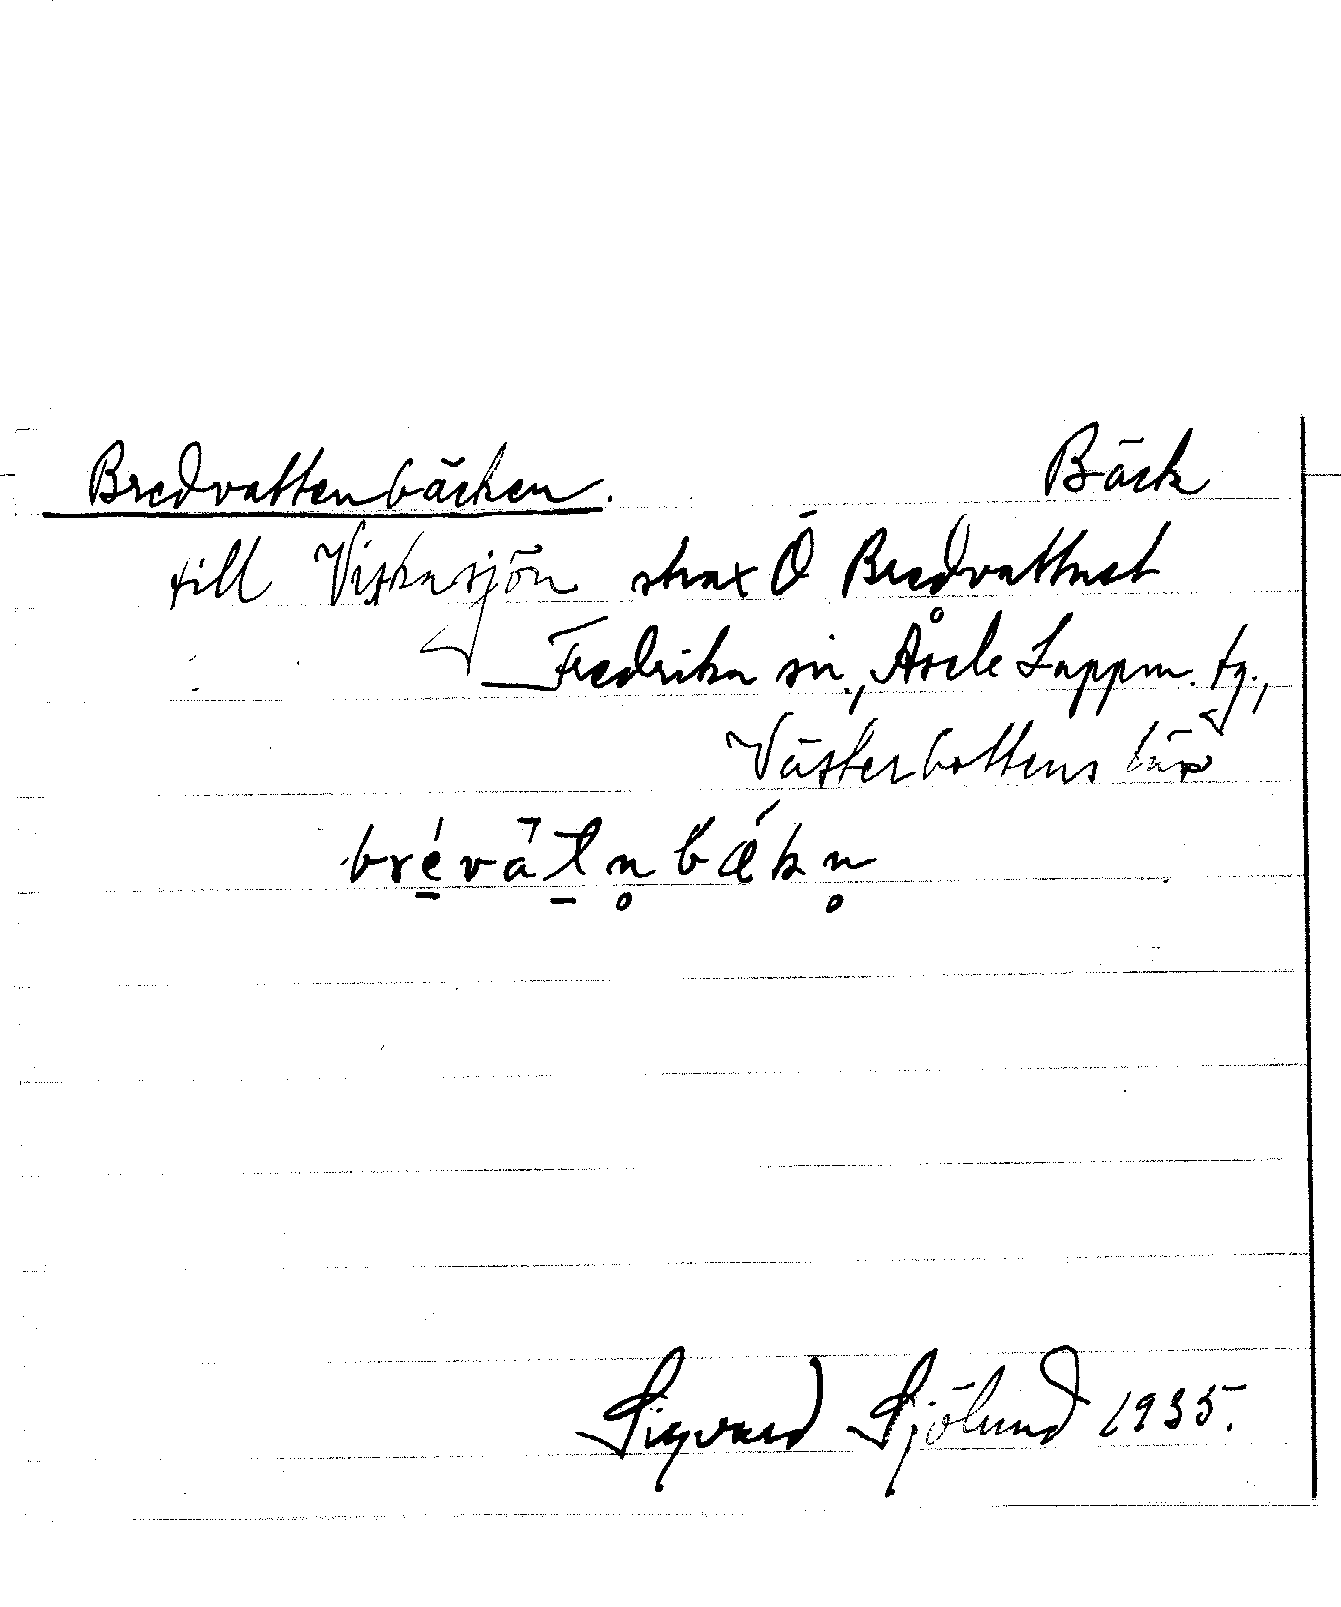 Bredvattenbäcken. Bäck
till Viskasjön strax Ö Bredvattnet
Fredrika sn., Åsele Lappm. tg.,
Västerbottens län
brévàt̲n̥bǽkn̥
Sigvard Sjölund 1935.